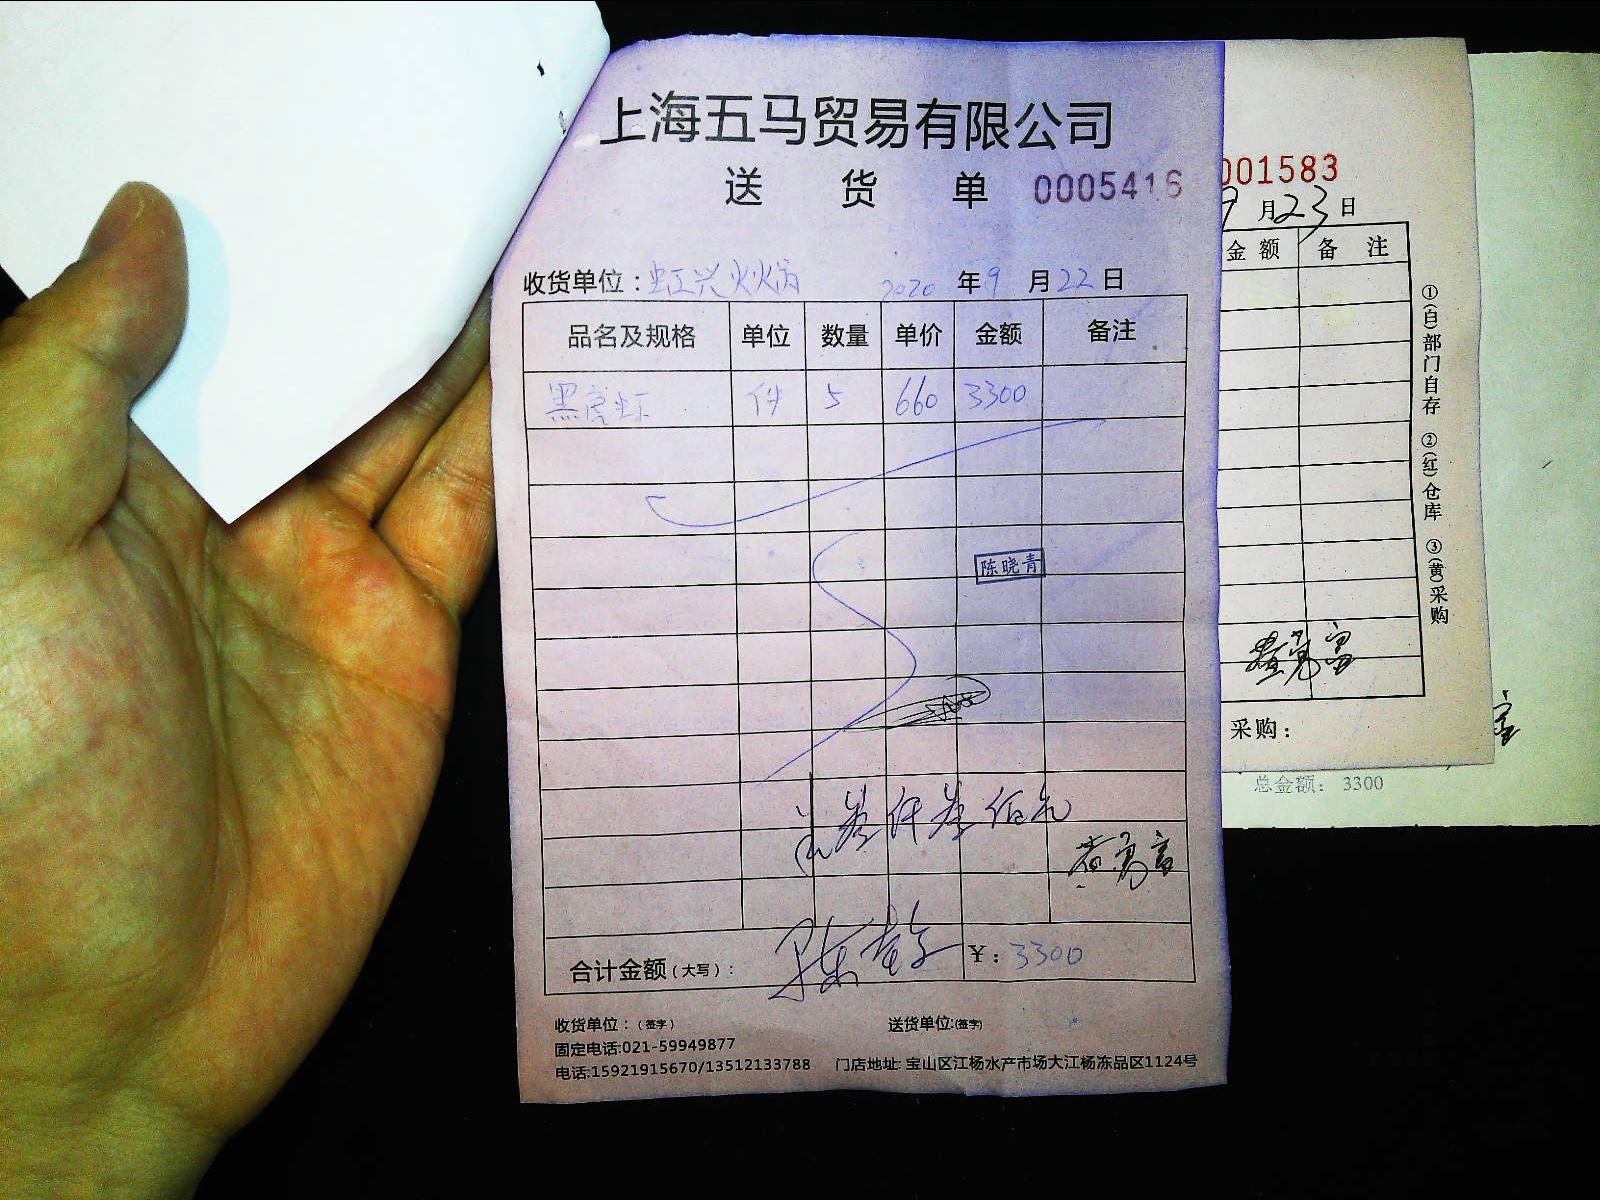 上海五马贸易有限公司
送 货 单 0005416
收货单位：虹兴火火锅 2020 年 9 月 22 日
品名及规格 单位 数量 单价 金额 备注
黑虎虾 件 5 660 3300
陈晓青
叁仟叁佰元
合计金额（大写）： ¥：3300
收货单位：（签字） 送货单位:(签字)
固定电话:021-59949877
电话:15921915670/13512133788 门店地址: 宝山区江杨水产市场大江杨冻品区1124号
001583
9 月 23 日
金 额 备 注
①(白)部门自存 ②(红)仓库 ③(黄)采购
采购：
总金额： 3300